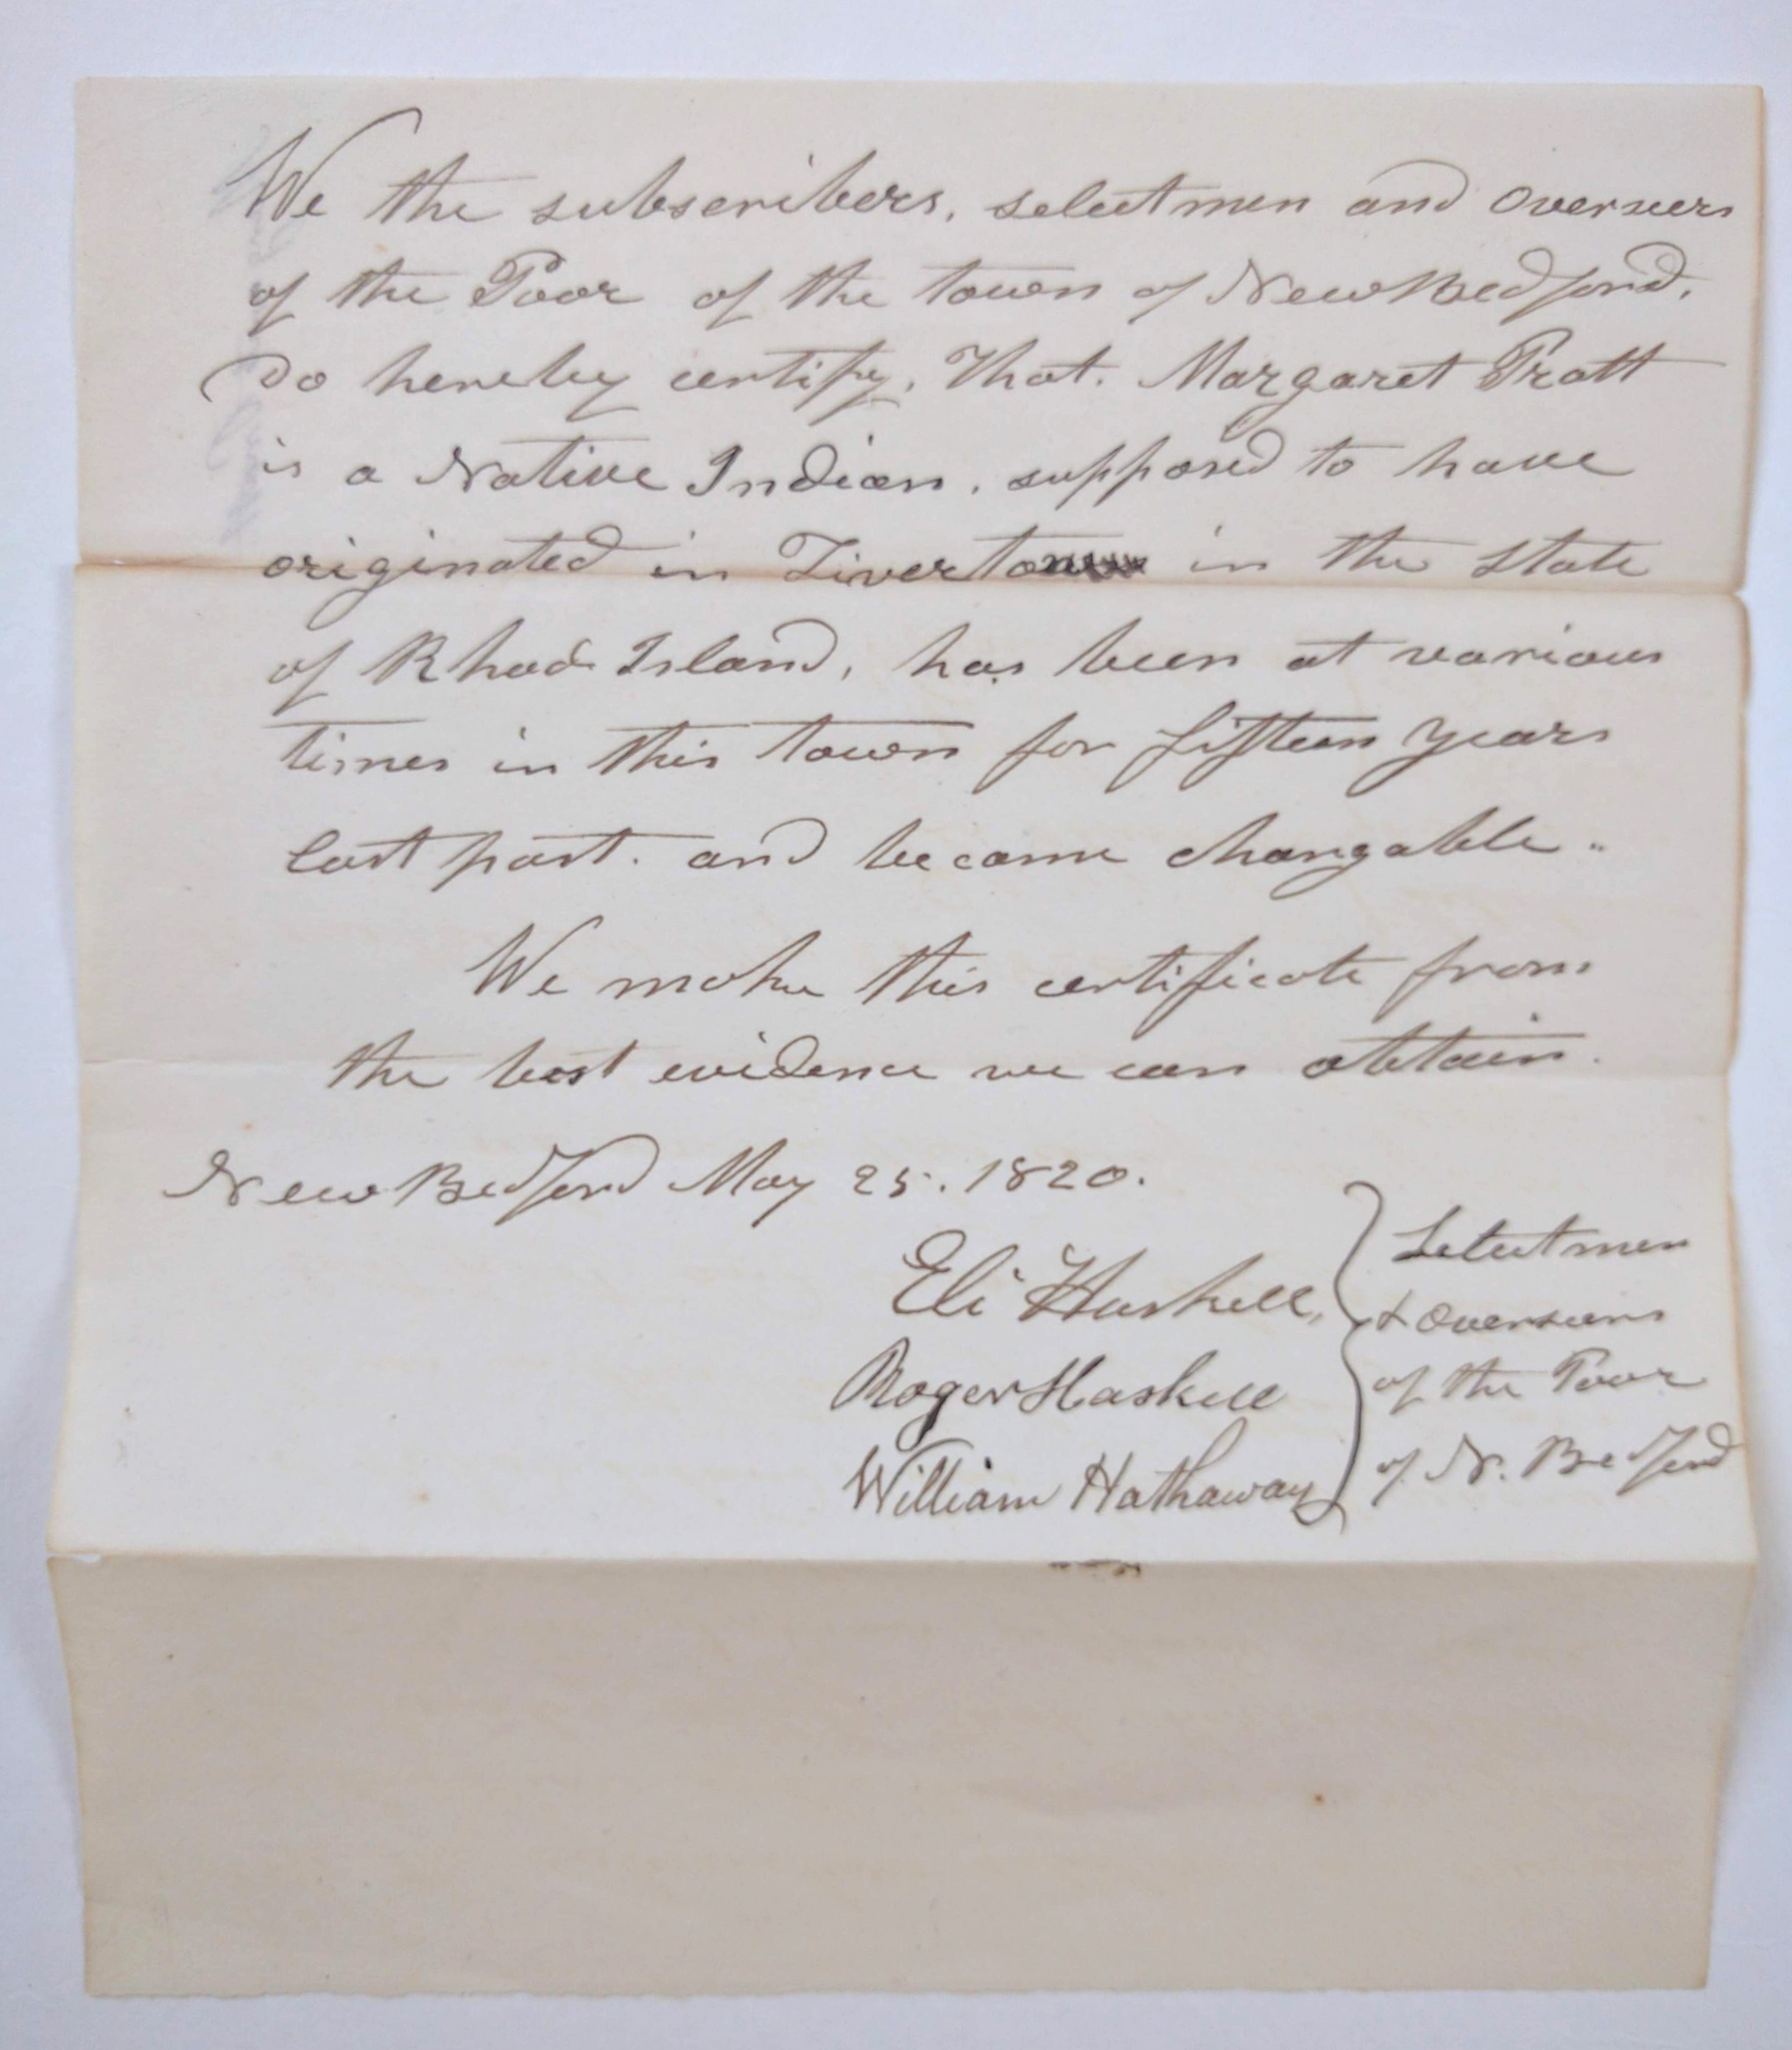 We the subscribers, selectmen and overseers
of the Poor of the town of New Bedford,
do hereby certify, That. Margaret Pratt
is a Native Indian, supposed to have
originated in Tiverton in the State
of Rhode Island, has been at various
times in this town for fifteen years
last past. and became changable..
We make this certificate from
the best evidence we can obtain.
New Bedford May 25. 1820.
Eli Haskell, } Selectmen
& Overseers
Roger Haskell of the Poor
William Hathaway of N. Bedford